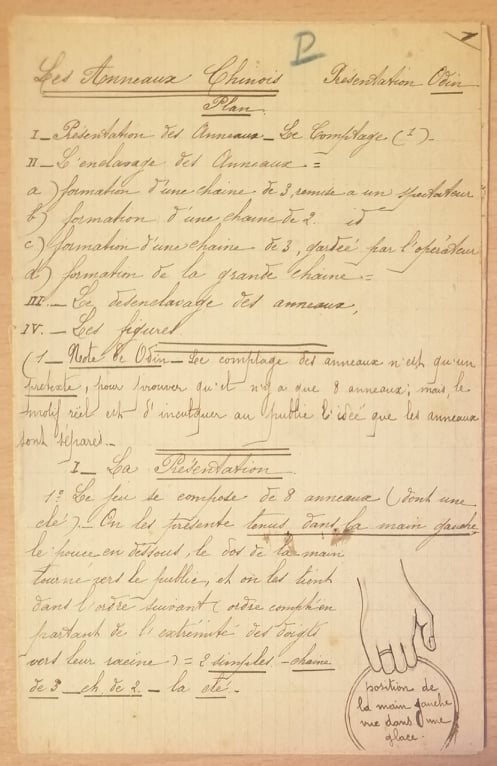 D
1
Les Anneaux Chinois Présentation Odin
Plan.
I _ Présentation des Anneaux _ Le Comptage (1) _
II _ L'enclavage des Anneaux =
a) formation d'une chaine de 3, remise a un spectateur
b) formation d'une chaine de 2. id
c) formation d'une chaine de 3, gardée par l'opérateur
d) formation de la grande chaîne =
III. _ Le désenclavage des anneaux,
IV. _ Les figures
(1 _ Note de Odin _ Le comptage des anneaux n'est qu'un
prétexte, pour prouver qu'il n'y a que 8 anneaux; mais, le
motif réel est d'inculquer au public l'idée que les anneaux
sont séparés. _
I _ La Présentation
1º Le jeu se compose de 8 anneaux (dont une
clé) _ On les présente tenus, dans la main gauche
le pouce en dessous, le dos de la main
tourné vers le public, et on les tient
dans l'ordre suivant (ordre compté en
partant de l'extrémité des doigts
vers leur racine) = 2 simples _ chaine
de 3 _ ch. de 2 _ la clé.
position de
la main gauche
vue dans une
glace.